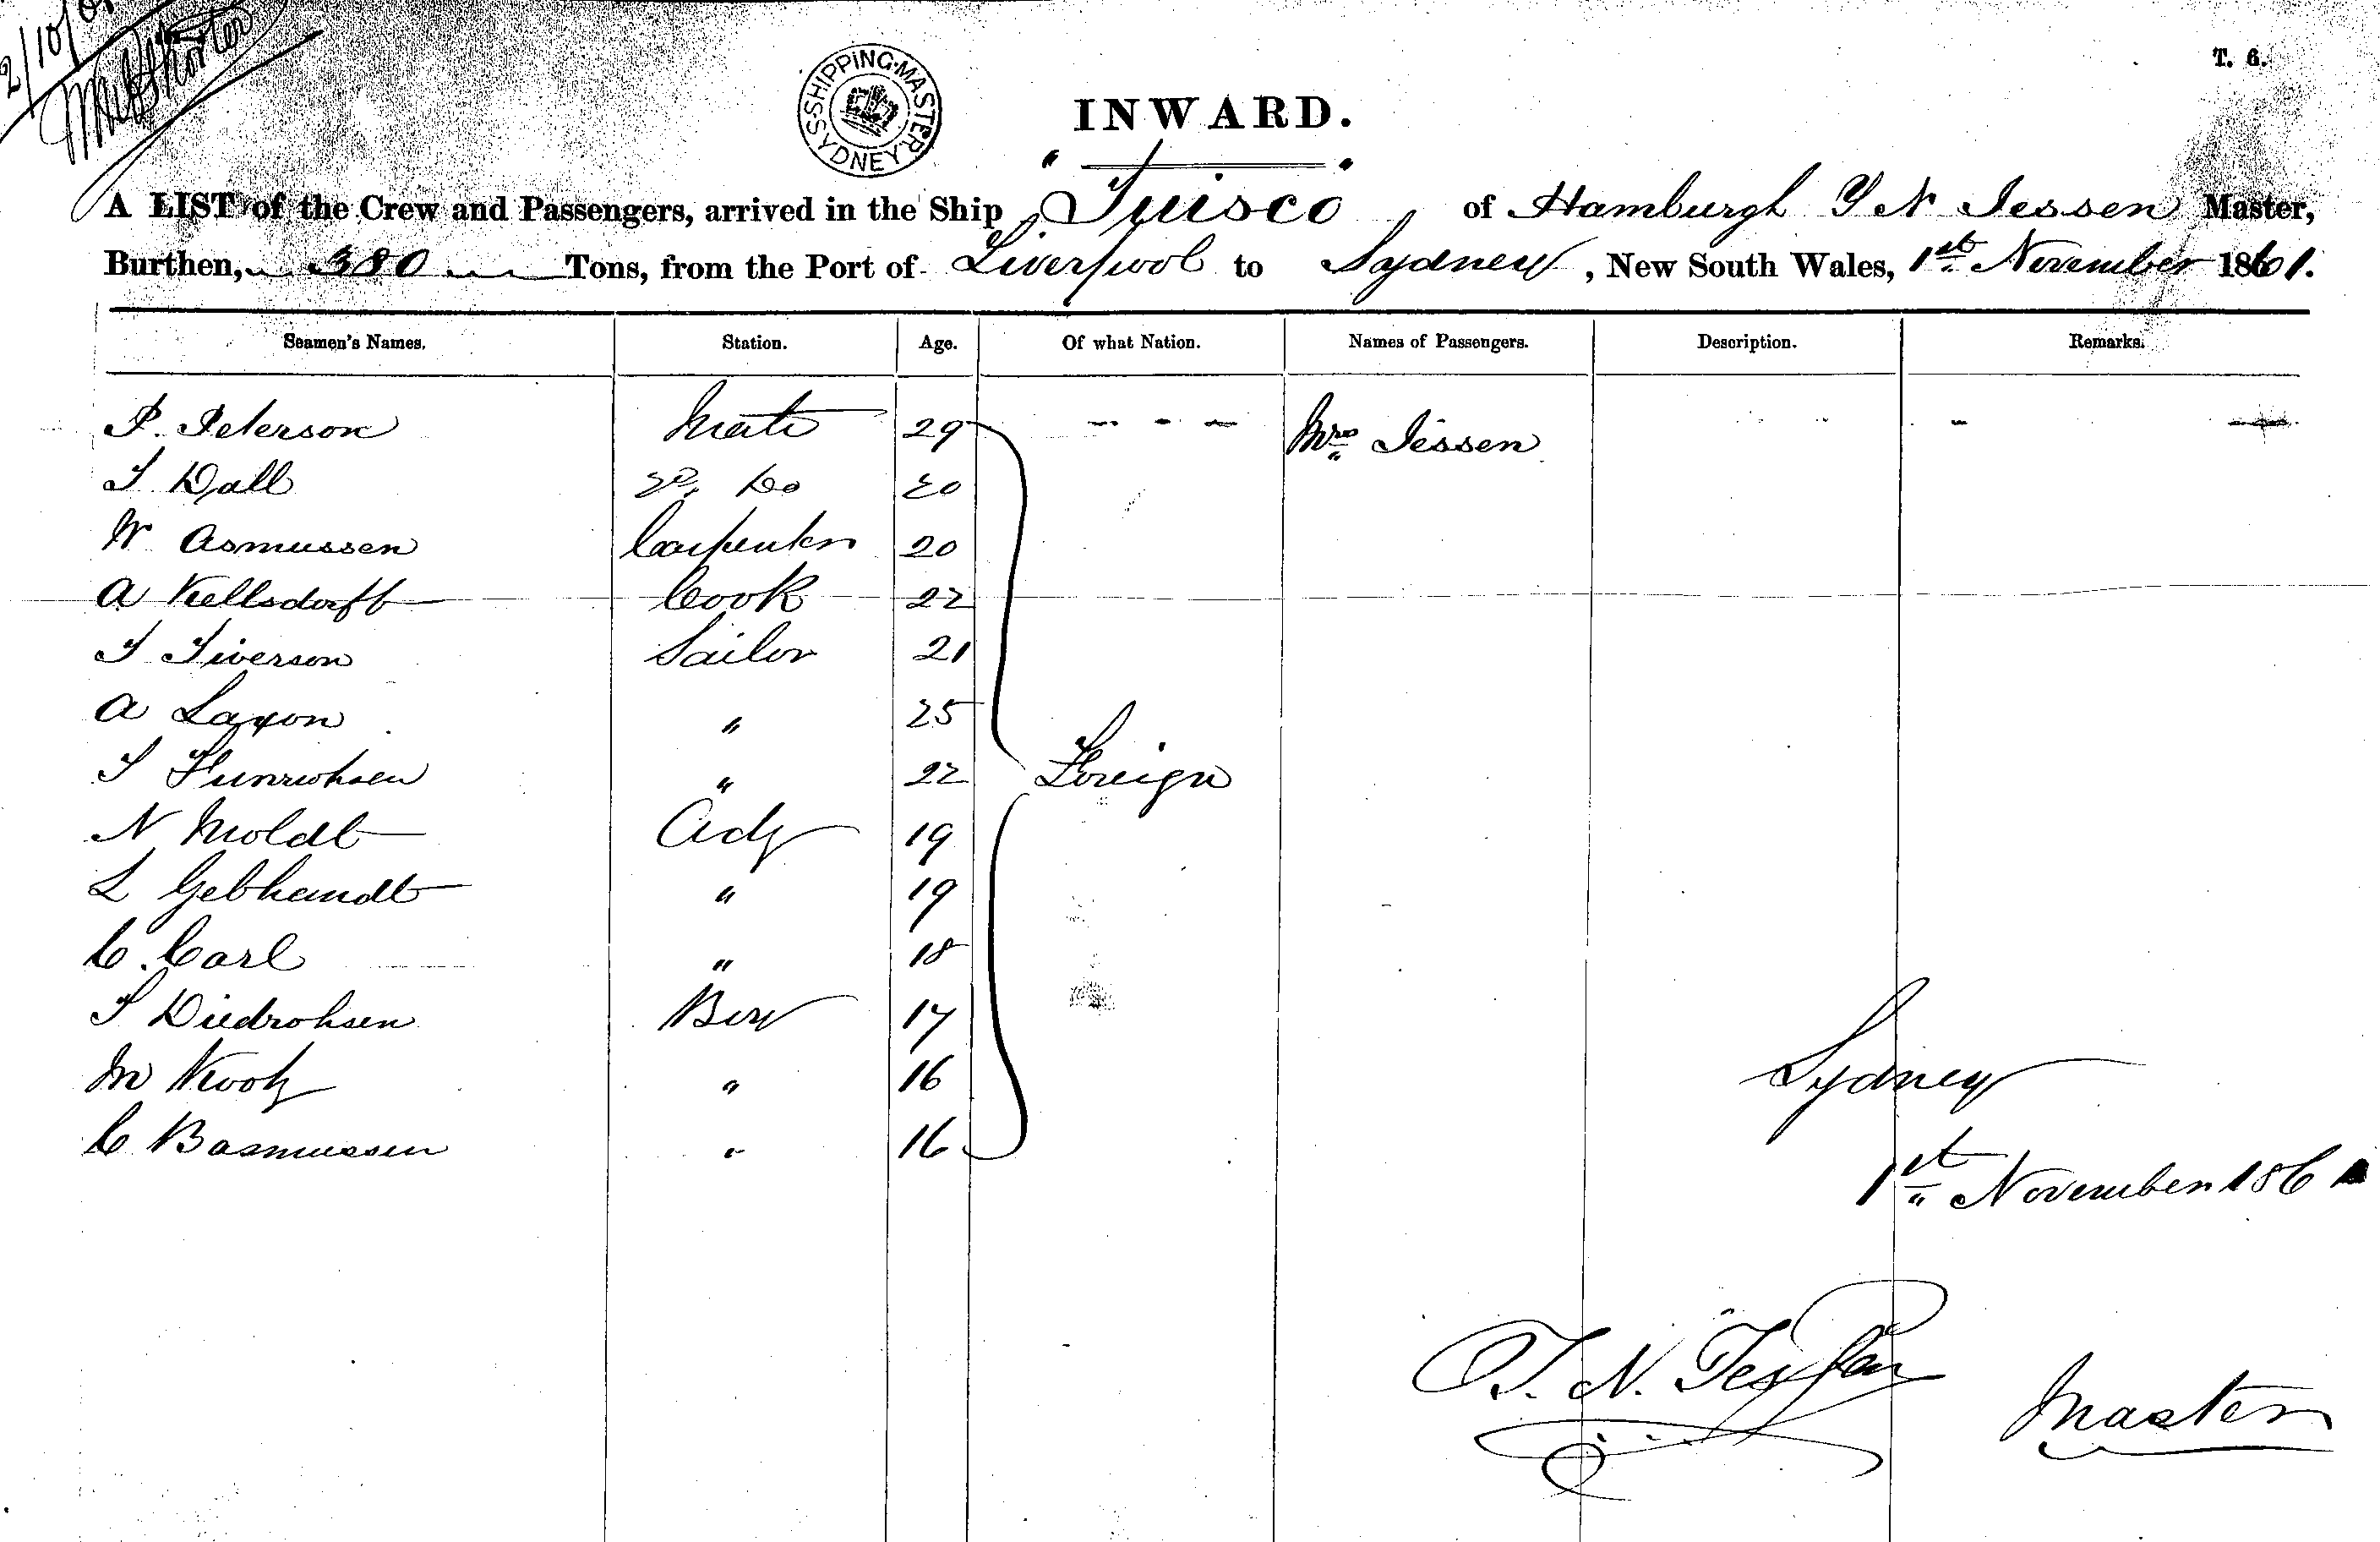 T. 6.
SHIPPING·MASTER
SYDNEY
INWARD.
A LIST of the Crew and Passengers, arrived in the Ship "Tuisco" of Hamburgh J N Jessen Master,
Burthen, 380 Tons, from the Port of Liverpool to Sydney, New South Wales, 1st November 1861.
Seamen's Names. Station. Age. Of what Nation. Names of Passengers. Description. Remarks.
P. Peterson Mate 29 - - - Mrs Jessen
J Dall 2d, Do 20
W Asmussen Carpenter 20
A Kellsdorff Cook 22
J Siverson Sailor 21
A Laxon " 25
J " 22 Foreign
N Moldt 19
L Gebhandt " 19
C. Carl " 18
J Diedrohsen Boy 17
M " 16
C Basmussen " 16
Sydney
1st November 1861
J. N. Jessen
Master